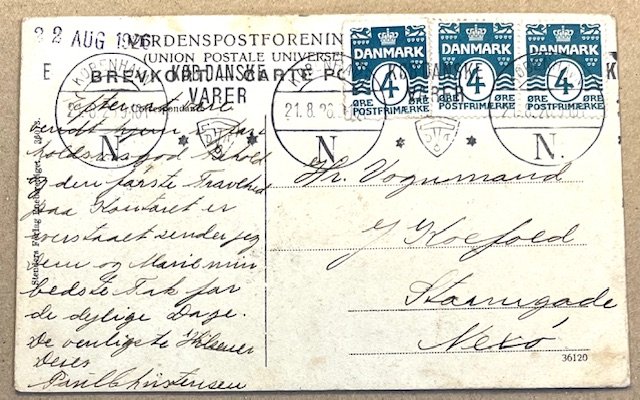 22 AUG 1926
VERDENSPOSTFORENIN
(UNION POSTALE UNIVERSE
BREVKORT — CARTE PO
KØBENHAVN
KØB DANSKE
VARER
Correspondance
N.
21.8.26
KØB DANSKE
VARER
N.
N.
DANMARK
4
ØRE
POSTFRIMÆRKE
DANMARK
4
ØRE
POSTFRIMÆRKE
DANMARK
4
ØRE
POSTFRIMÆRKE
efter at være
vendt hjem
og den første Travlhed
paa Kontoret er
overstaaet sender jeg
Dem og Marie min
bedste Tak for
de dejlige Dage.
De venligste Hilsener
Deres
Poul Christensen
Hr. Vognmand
J Koefoed
Nexø
Stenders Forlag
36120